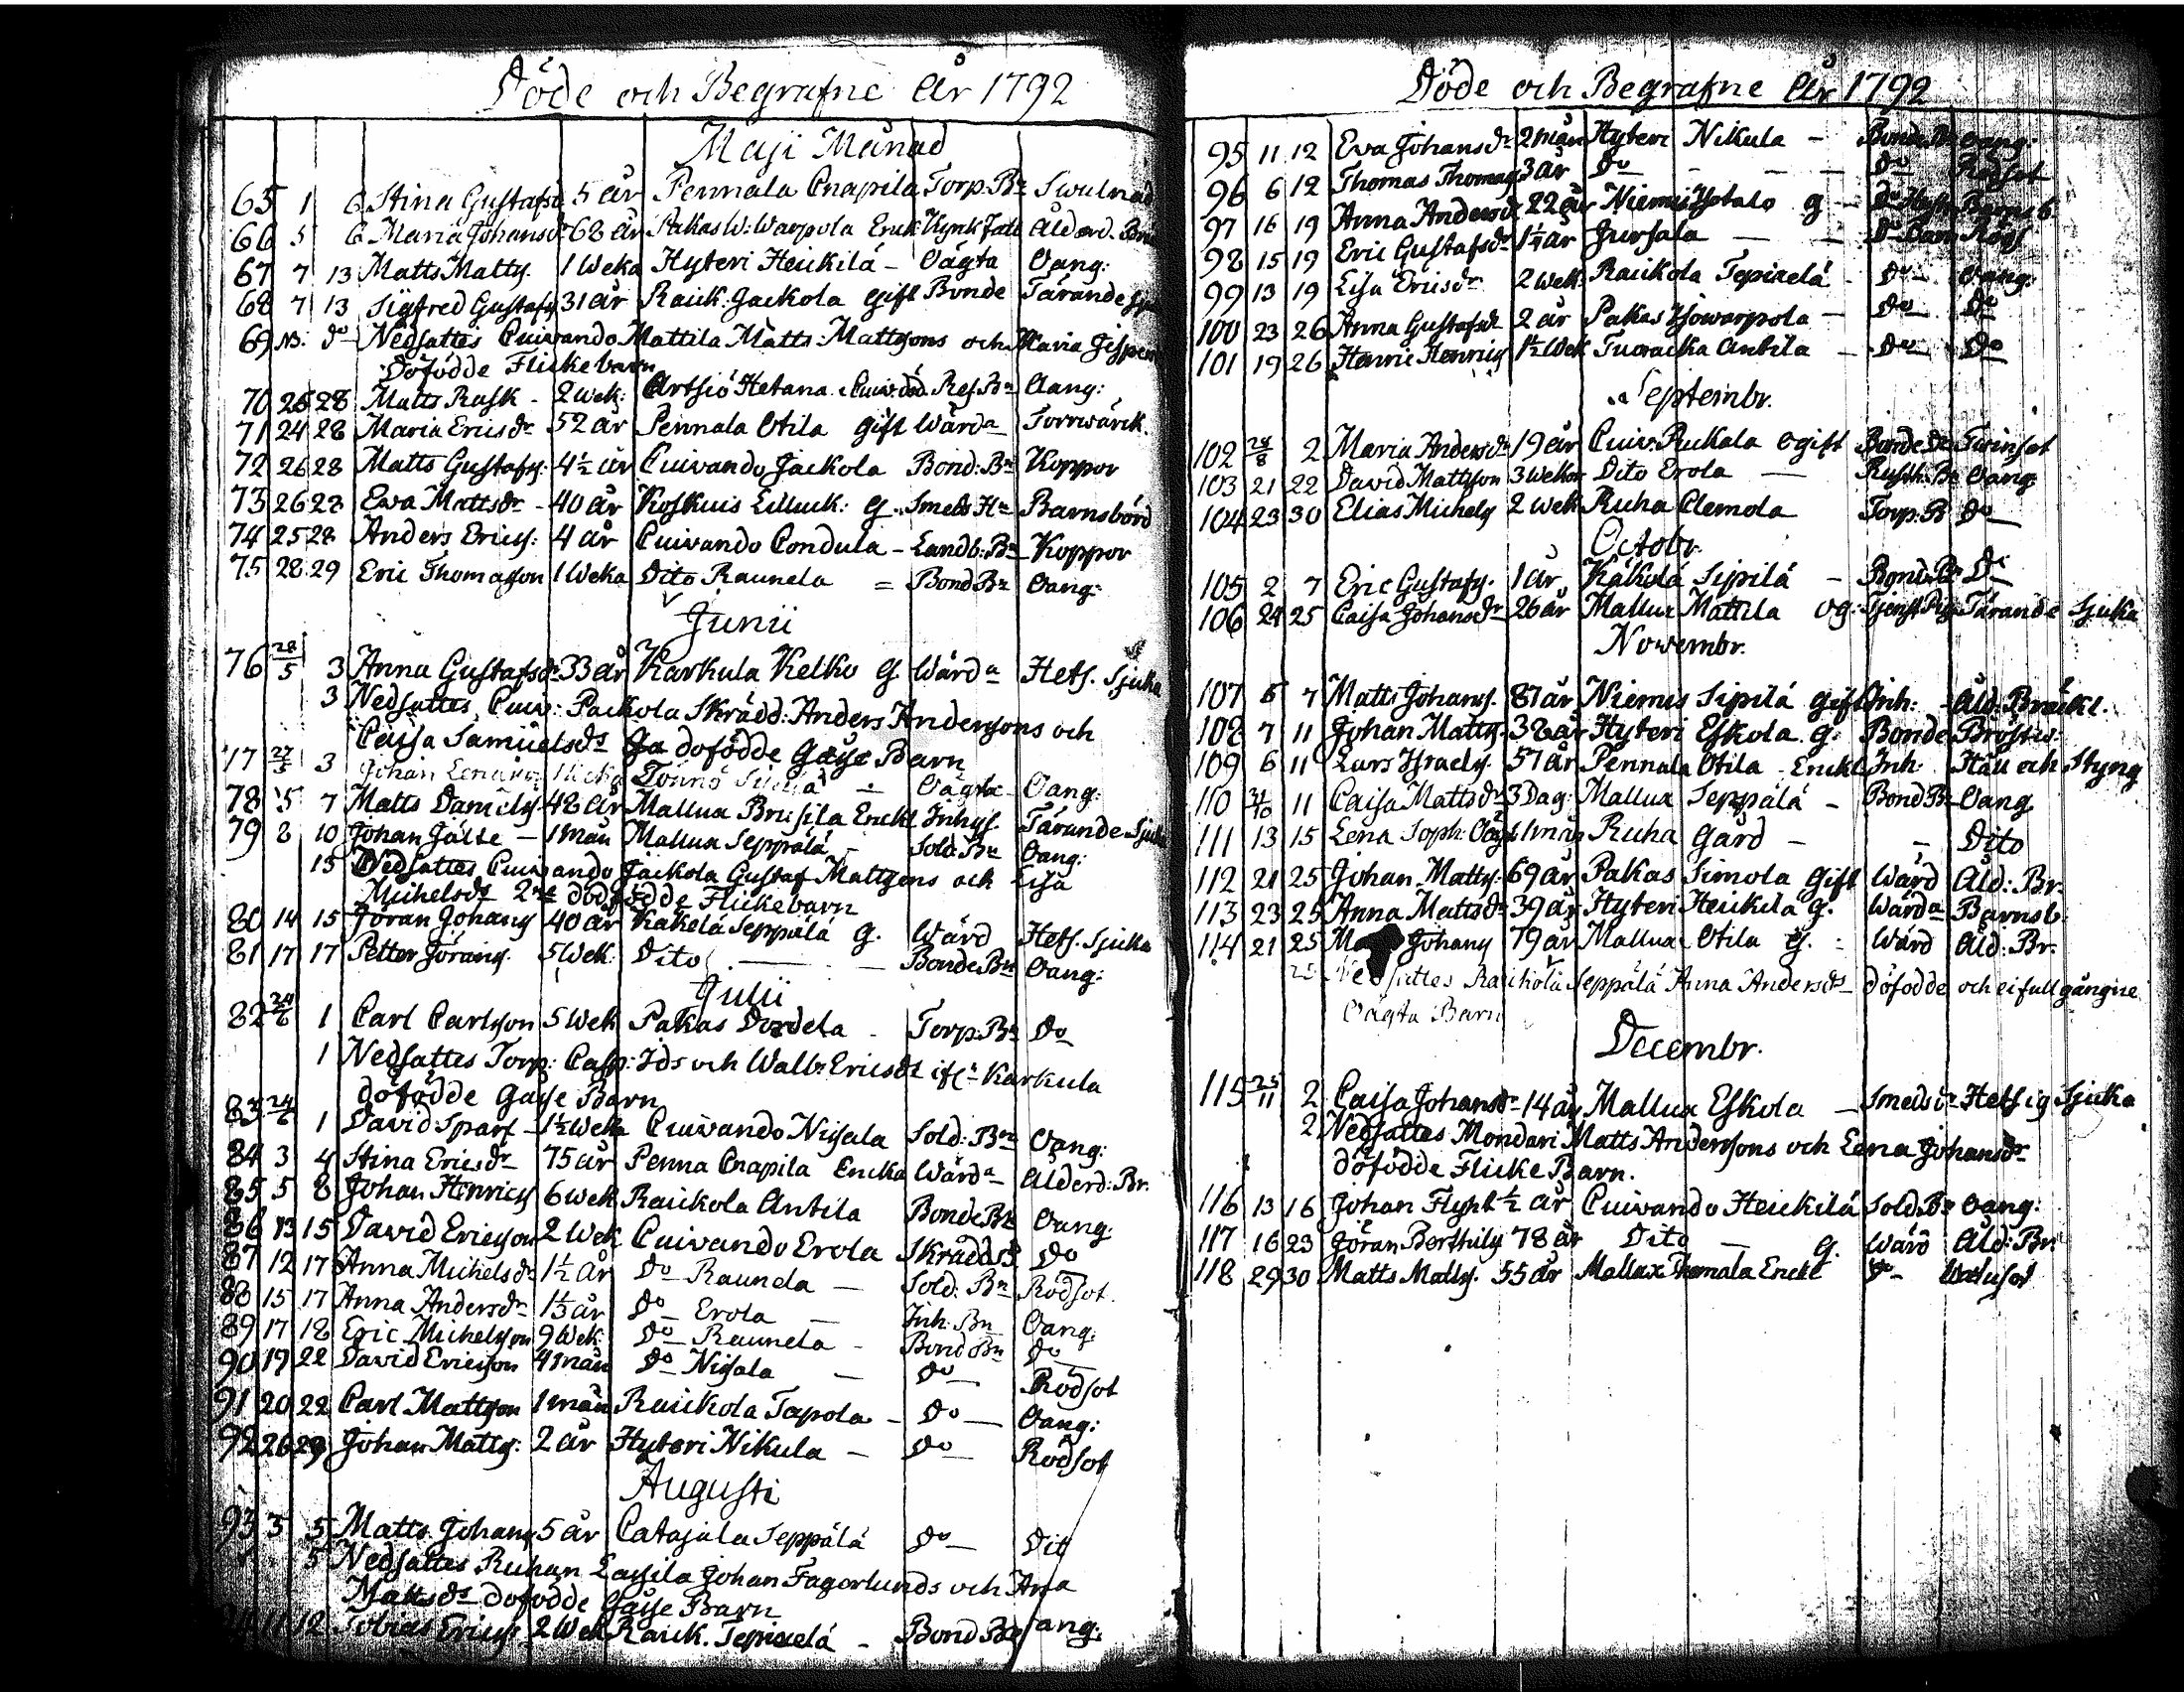 Döde och Begrafne År 1792
Maji Månad
65 1 6 Stina Gustafsd 5 år Pennala Cnapila Torp. Bn
66 5 6 Maria Johansdr 68 år Pakas W: Warpola Enck: Hynk
67 7 13 Matts Matty. 1 Weka Hyteri Heickilä - Oägta Oang:
68 7 13 Sigfred Gustafs 31 år Raick: Jackola gift Bonde Tärande
69 NB. do Nedsattes Cuivando Mattila Matts: Mattsons och Maria
Döfödde Flickebarn
70 26 28 Matts Rask - 2 wek: Artsiö Hetana Bn Oang:
71 24 28 Maria Ericsdr 52 år Pennala Otila gift Wärda Torrwärck.
72 26 28 Matts Gustafs: 4½ år Cuivando Jackola Bond: Bn Koppor
73 26 28 Eva Mattsdr - 40 år Koskuis g. Smeds Hu Barnsbörd
74 25 28 Anders Erics: 4 år Cuivando Condula - Landb: Bn Koppor
75 28 29 Eric Thomasson 1 Weka Dito Raunela = Bond Bn Oang:
Junii
76 28/5 3 Anna Gustafsdr 33 år Karkula Kelko g Wärda Hets. Sjuka
3 Nedsattes Cuiv: Packola Skrädd: Anders Anderssons och
Caisa Samuelsdr döfödde Gåsse Barn
77 27/5 3 Johan - Oägta Oang:
78 5 7 Matts Daniels 48 år Mallua Brusila Enckl Inhys. Tärande Sjuka
79 8 10 Johan Jälte - 1 mån Mallua Seppälä - Sold: Bn Oang:
15 Nedsattes Cuivando Jackola Gustaf Mattsons och Lisa
Michelsdr 2ne dödfödde Flickebarn
80 14 15 Jöran Johans 40 år Kakelä Seppälä g. Wärd Hets. Sjuka
81 17 17 Petter Jörans. 5 Wek: Dito - Bonde Bn Oang:
Julii
82 24/6 1 Carl Carlsson 5 Wek Pakas Dordela - Torp: Bn Do
1 Nedsattes Torp: Casp: Ids och Walb: Ericsdr ifrn Karkula
döfödde Gåsse Barn
83 24/6 1 David Sparf - 1½ Weka Cuivando Nisala Sold: Bn Oang:
84 3 4 Stina Ericsdr 75 år Penna Cnapila Encka Wärda Ålderd: Br.
85 5 8 Johan Henrics 6 wek Raickola Antila Bonde Bn Oang.
86 13 15 David Ericsson 2 Wek Cuivando Erola Skrädd B Do
87 12 17 Anna Michelsdr 1½ år Do Raunela - Sold: Bn Rödsot.
88 15 17 Anna Andersdr år Do Erola - Inh: Bn Oang:
89 17 18 Eric Michelsson 9 Wek Do Raunela - Bond Bn Do
90 19 22 David Ericsson 4 mån Do Nisala - Do Rödsot
91 20 22 Carl Mattson 1 mån Raickola Tapola - Do Oang:
92 26 29 Johan Matts: 2 år Hyteri Nikula - Do Rödsot
Augusti
93 3 5 Matts Johans 5 år Catajala Seppälä Do Dit
5 Nedsattes Ruhan Lassila Johan Fagerlunds och Ana
Mattsdr dofödde Gåsse Barn
11 12 Tobias Erics. 2 Wek Raick. - Bond Bn Oang:
Döde och Begrafne År 1792
95 11 12 Eva Johansdr 2 mån Hyteri Nikula - Bonde Bn Oang:
96 6 12 Thomas Thomas 3 år Do - Do Rödsot
97 16 19 Anna Andersd 22 år Niemis Ystalo g - Barns b.
98 15 19 Eric Gustafsdr 1¼ år Jursala -
99 13 19 Lisa Ericsdr 2 wek Raickola - Do Oang:
100 23 26 Anna Gustafsdr 2 år Pakas Isowarpola - Do Do
101 19 26 Henric Henrics 1½ Wek Antila - Do Do
Septembr.
102 28/8 2 Maria Andersdr 19 år Cuiv: Ruckala ogift Bonde Dr
103 21 22 David Mattsson 3 wekor Dito Erola - Rusth: Bn Oang:
104 23 30 Elias Michels 2 wek Ruha Clemola Torp: B Do
Octobr.
105 2 7 Eric Gustafs. 1 år Käkölä Sipilä - Bond: Bn Do
106 24 25 Caisa Johansdr 26 år Mallua Mattila og: Tjenst Pig Tärande Sjuka
Novembr.
107 6 7 Matts Johans. 81 år Niemis Sipilä gift Inh: Åld: Bräckl.
108 7 11 Johan Matts. 38 år Hyteri Eskola g. Bonde Bröstw:
109 6 11 Lars Israels. 57 år Pennala Otila - Enckl Inh: Håll och Styng
110 31/10 11 Caisa Mattsdr 3 Dag: Mallua Seppälä - Bond Bn Oang
111 13 15 Lena Soph: 1 mån Ruha Gård - - Dito
112 21 25 Johan Matts: 69 år Pakas Simola gift Wärd Åld: Br.
113 23 25 Anna Mattsdr 39 år Hyteri Heickilä g. Wärda Barnsb:
114 21 25 Ma Johans 79 år Mallua Otila g. Wärd Åld: Br.
25 Nedsattes Raickola Seppälä Anna Andersdr döfödde och ei fullgångne
Oägta Barn
Decembr.
115 25/11 2 Caisa Johansdr 14 år Mallua Eskola - Smeds dr Hetsig Sjuka
2 Nedsattes Mondari Matts Anderssons och Lena Johansdr
döfödde Flicke Barn.
116 13 16 Johan Flykt ½ år Cuivando Heickilä Sold. Bn Oang:
117 16 23 Jöran Berthils 78 år Dito - g. Wärd Åld: Br.
118 29 30 Matts Matts. 55 år Mallax Thomala Enckl Do Watusot